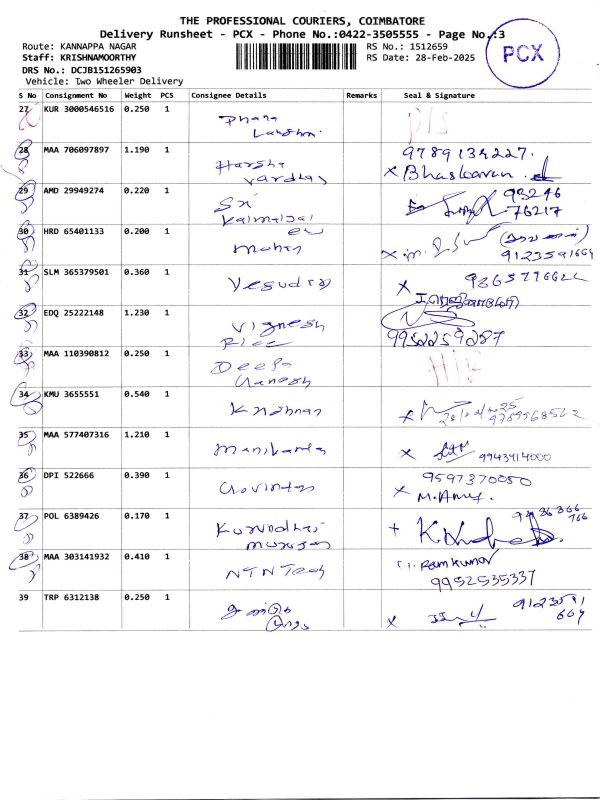 THE PROFESSIONAL COURIERS, COIMBATORE
Delivery Runsheet - PCX - Phone No.:0422-3505555 - Page No.:3
Route: KANNAPPA NAGAR
RS No.: 1512659
Staff: KRISHNAMOORTHY
RS Date: 28-Feb-2025
PCX
DRS No.: DCJB151265903
Vehicle: Two Wheeler Delivery
S No Consignment No Weight PCS Consignee Details Remarks Seal & Signature
27 KUR 3000546516 0.250 1 Dhana
Lakshmi
28 MAA 706097897 1.190 1 Harsha 9789134227.
vardhan x Bhaskaran
29 AMD 29949274 0.220 1 Sri 93246
76217
30 HRD 65401133 0.200 1 Mohan 9123591664
31 SLM 365379501 0.360 1 Yesudas x
32 EDQ 25222148 1.230 1 Vignesh
Rice 9952259287
33 MAA 110390812 0.250 1 Deepa
Ganesh
34 KMU 3655551 0.540 1 Krishnan x
35 MAA 577407316 1.210 1 Manikanda x 9943414000
36 DPI 522666 0.390 1 Govindan 9597370050
x M.
37 POL 6389426 0.170 1
Murugan
38 MAA 303141932 0.410 1 NTN Tech Ramkumar
9952535337
39 TRP 6312138 0.250 1 x